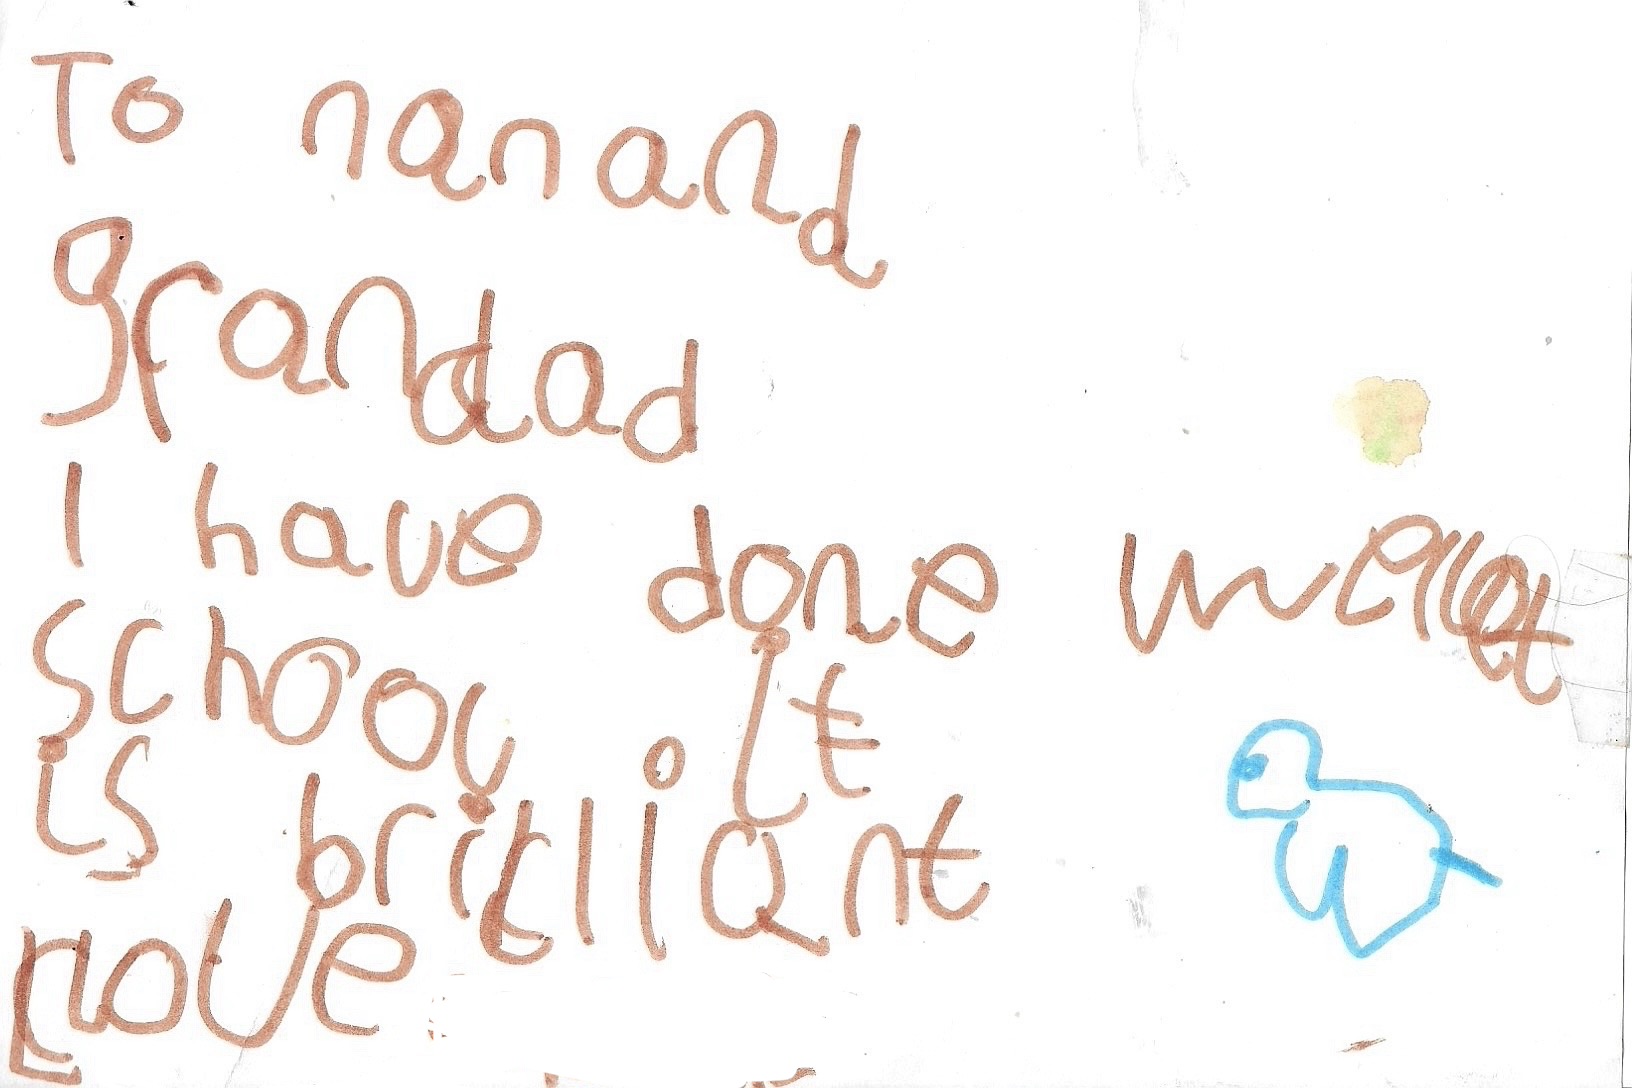 To nan and
grandad
I have done well at
school it
is brilliant
Love